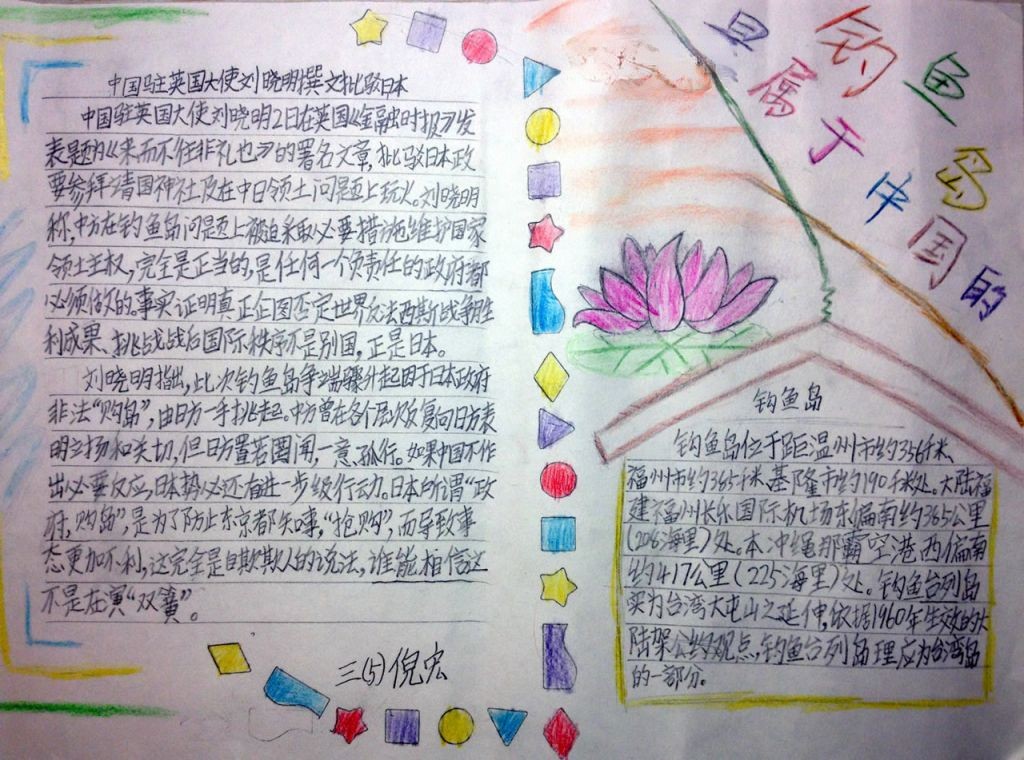 中国驻英国大使刘晓明撰文批驳日本
中国驻英国大使刘晓明2日在英国《金融时报》发
表题为《来而不往非礼也》的署名文章,批驳日本政
要参拜靖国神社及在中日领土问题上玩火。刘晓明
称,中方在钓鱼岛问题上被迫采取必要措施维护国家
领土主权,完全是正当的,是任何一个负责任的政府都
必须做的。事实证明真正企图否定世界反法西斯战争胜
利成果、挑战战后国际秩序不是别国,正是日本。
刘晓明指出,此次钓鱼岛争端骤升起因于日本政府
非法“购岛”,由日方一手挑起。中方曾在各个层次反复向日方表
明立场和关切,但日方置若罔闻,一意孤行。如果中国不作
出必要反应,日本势必还有进一步升级行动。日本所谓“政
府,购岛”是为了防止东京都失事,“抢购”,而导致事
态更加不利,这完全是自欺欺人的说法,谁能相信这
不是在演“双簧”。
三(5)倪宏
钓鱼岛
是属于中国的
钓鱼岛
钓鱼岛位于距温州市约356千米、
福州市约385千米、基隆市约190千米处。大陆福
建福州长乐国际机场东偏南约365公里
(206海里)处。本冲绳那霸空港西偏南
约417公里(225海里)处。钓鱼台列岛
实为台湾大屯山之延伸,依据1960年生效的大
陆架公约观点,钓鱼台列岛理应为台湾岛
的一部分。